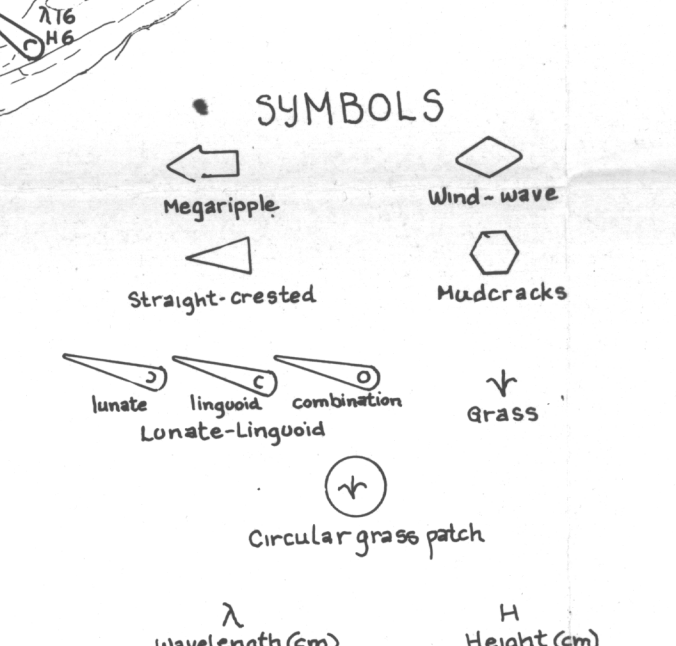 λ76
H6
SYMBOLS
Megaripple
Wind-wave
Straight-crested
Mudcracks
lunate linguoid combination
Lunate-Linguoid
Grass
Circular grass patch
λ H
Wavelength (cm) Height (cm)